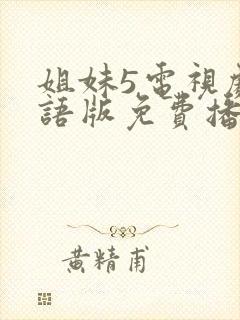 姐妹5電視劇
語版免費播
黄精甫